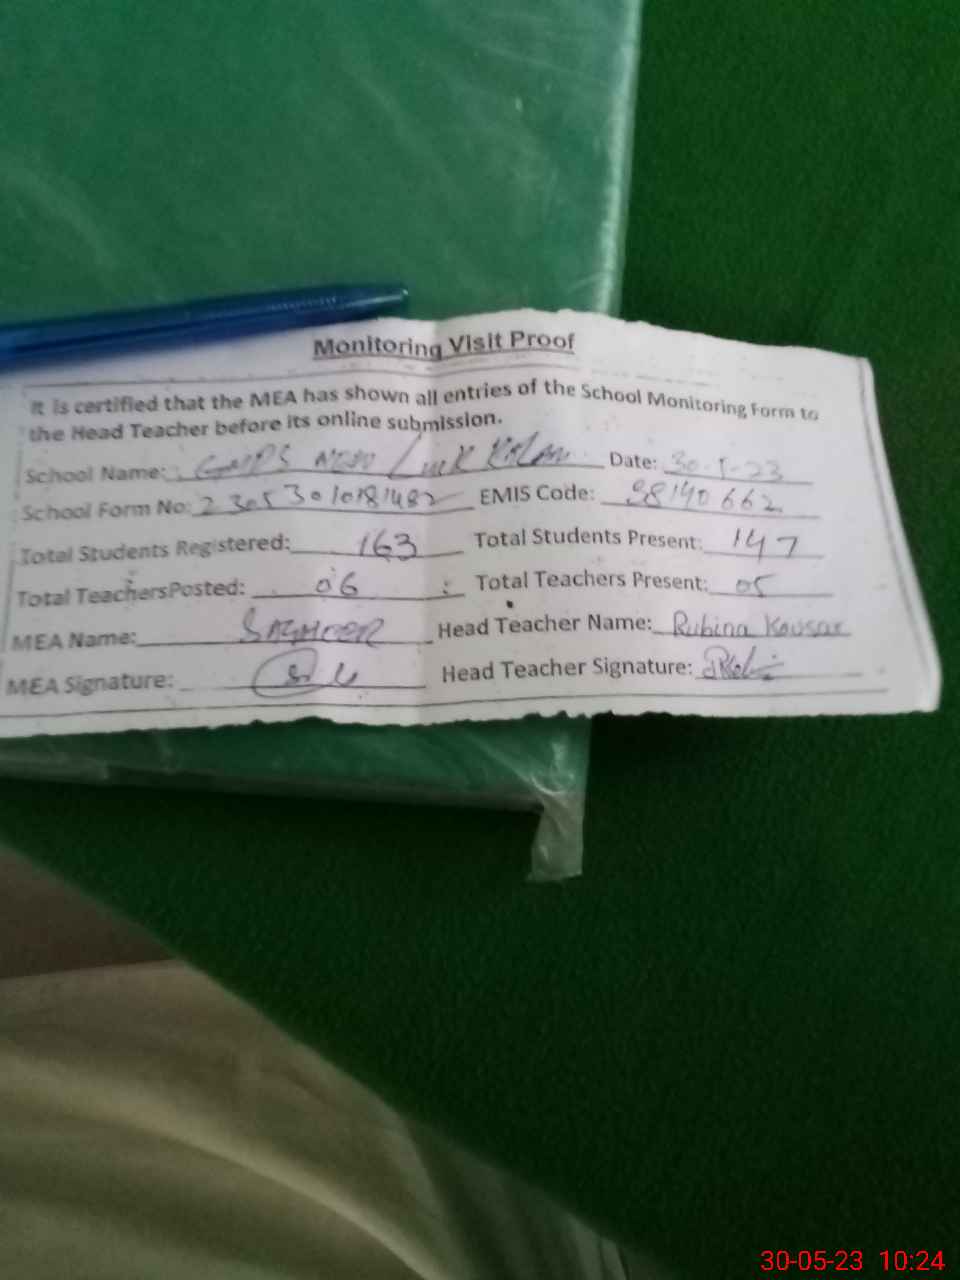 Monitoring Visit Proof
It is certified that the MEA has shown all entries of the School Monitoring Form to
the Head Teacher before its online submission.
School Name: Date: 30-5-23
School Form No: 23053010181482 EMIS Code: 38140662
Total Students Registered: 163 Total Students Present: 147
Total TeachersPosted: 06 Total Teachers Present: 05
MEA Name: Head Teacher Name: Rubina Kousar
MEA Signature: Head Teacher Signature:
30-05-23 10:24